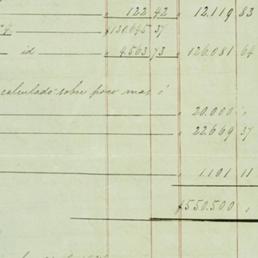 " 122 42 " 12.119 83
$130.645 37
" id " 4.563 73 " 126.081 64
calculado sobre poco mas ó
" 20.000 "
" 22.669 37
" 1.101 11
$550.500 "